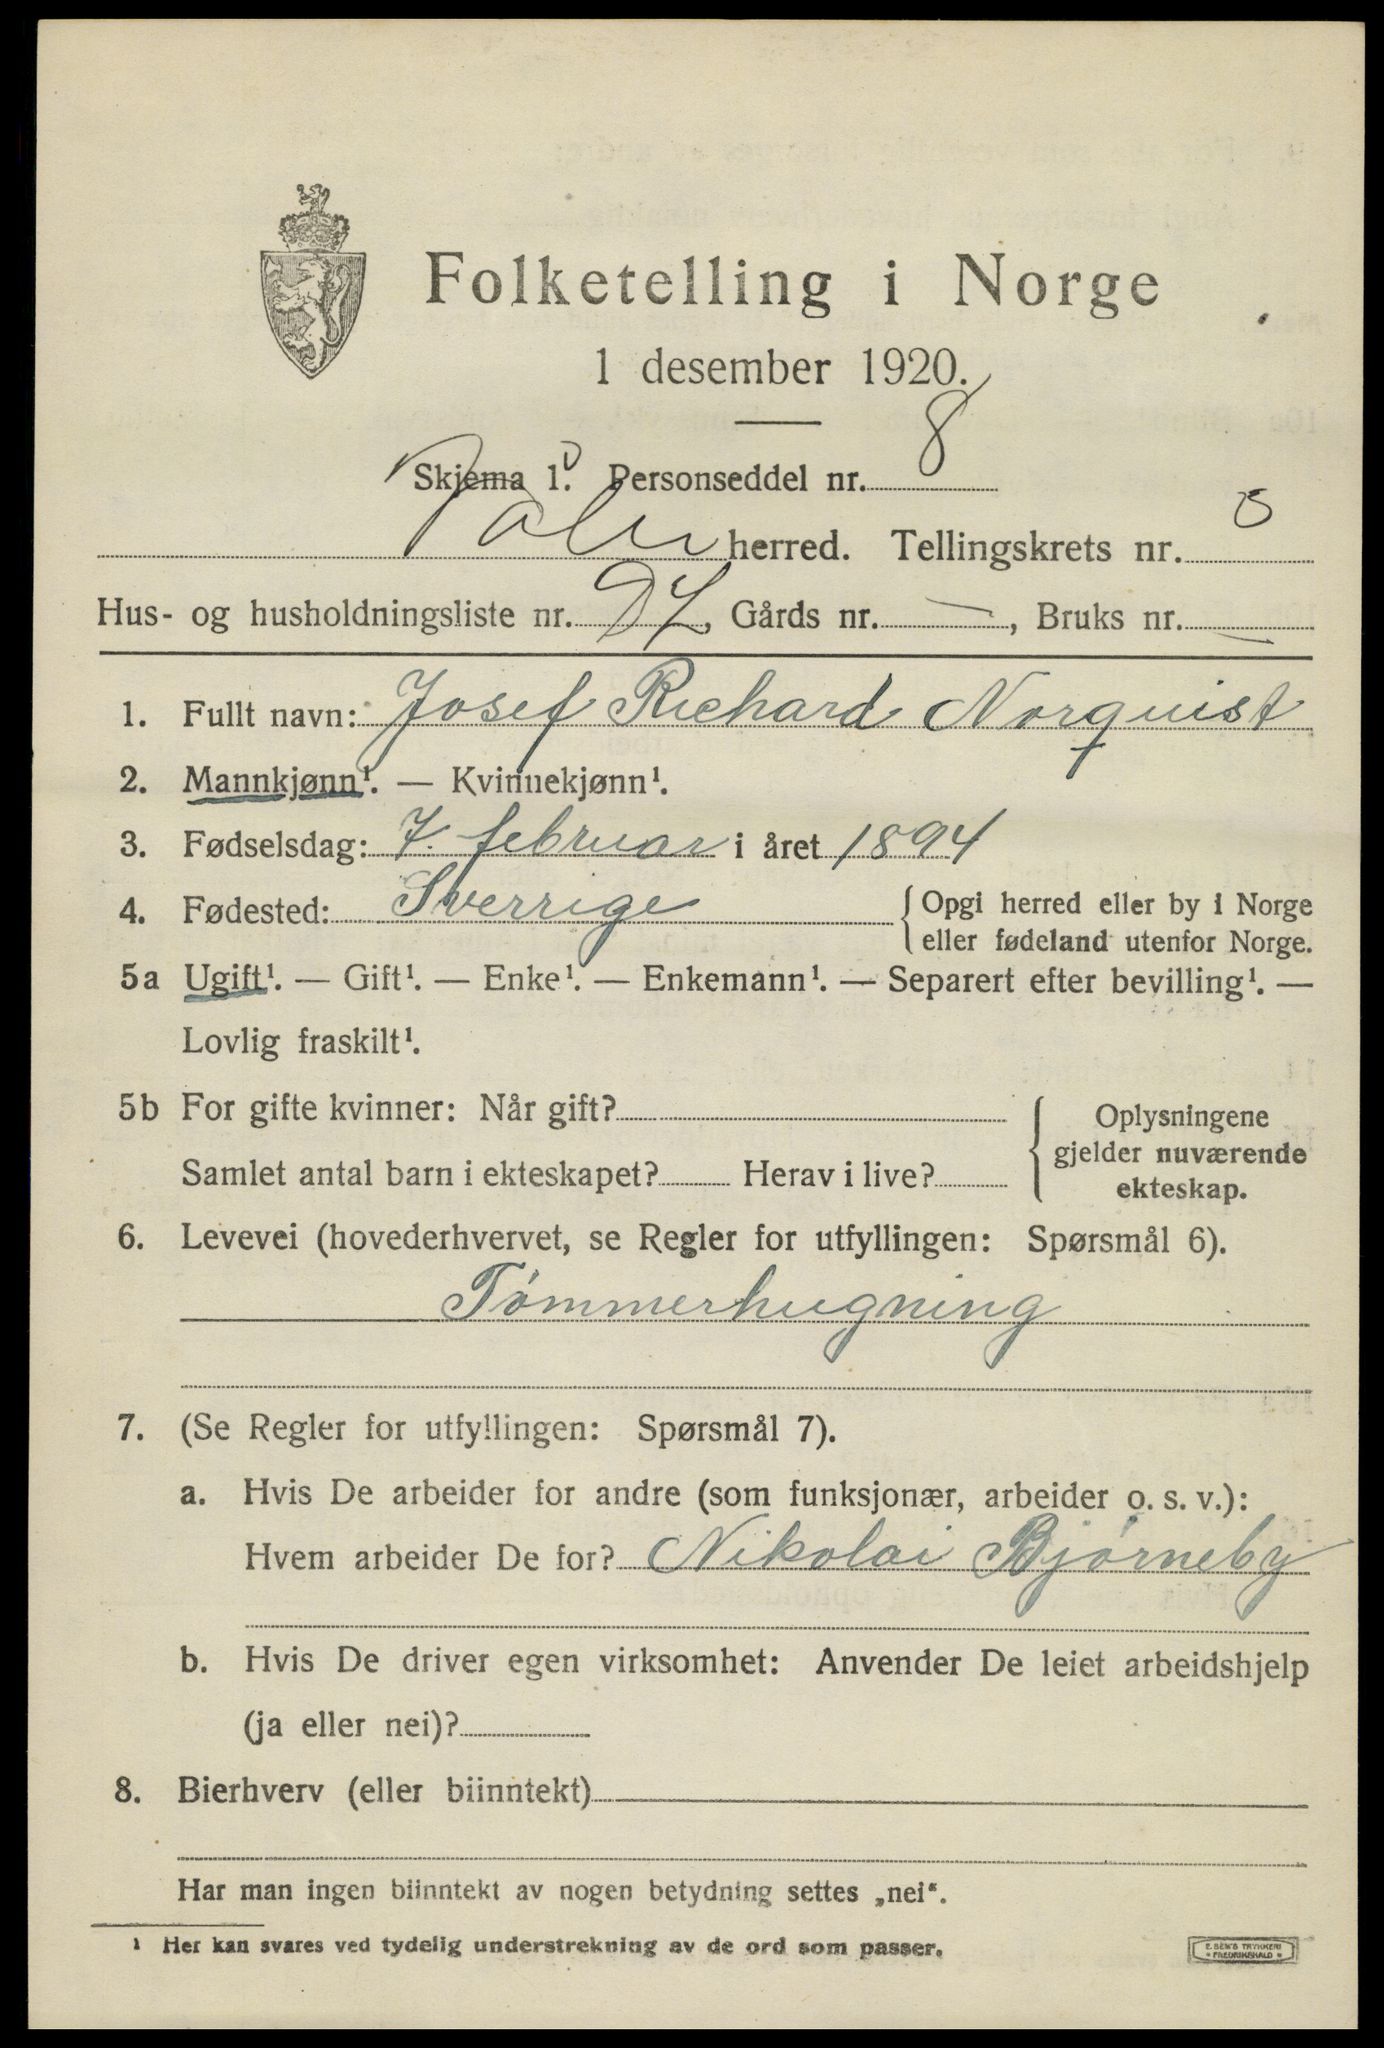 Folketelling i Norge
1 desember 1920.
Skjema 1. Personseddel nr. 8
Våler herred. Tellingskrets nr. 3
Hus- og husholdningsliste nr. , Gårds nr. —, Bruks nr. —
1. Fullt navn: Josef Richard Norquist
2. Mannkjønn¹. — Kvinnekjønn¹.
3. Fødselsdag: 7. februar i året 1894
4. Fødested: Sverrige { Opgi herred eller by i Norge
eller fødeland utenfor Norge.
5a Ugift¹. — Gift¹. — Enke¹. — Enkemann¹. — Separert efter bevilling¹. —
Lovlig fraskilt¹.
5b For gifte kvinner: Når gift? { Oplysningene
gjelder nuværende
Samlet antal barn i ekteskapet? Herav i live? ekteskap.
6. Levevei (hovederhvervet, se Regler for utfyllingen: Spørsmål 6).
Tømmerhugning
7. (Se Regler for utfyllingen: Spørsmål 7).
a. Hvis De arbeider for andre (som funksjonær, arbeider o. s. v.):
Hvem arbeider De for? Nikolai Bjørneby
b. Hvis De driver egen virksomhet: Anvender De leiet arbeidshjelp
(ja eller nei)?
8. Bierhverv (eller biinntekt)
Har man ingen biinntekt av nogen betydning settes „nei“.
¹ Her kan svares ved tydelig understrekning av de ord som passer.
E. SEM'S TRYKKERI
* FREDRIKSHALD *